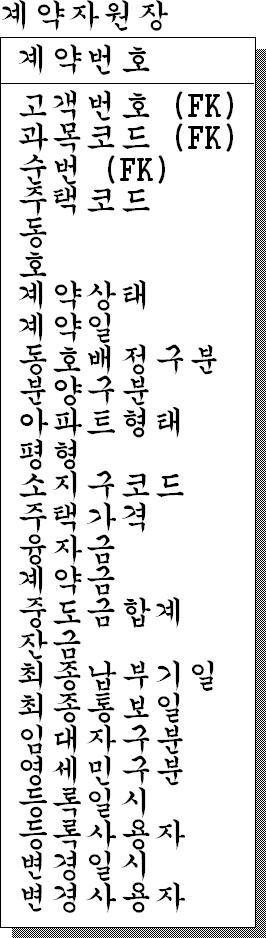 계약자원장
계약번호
고객번호 (FK)
과목코드 (FK)
순번 (FK)
주택코드
동
호
계약상태
계약일
동호배정구분
분양구분
아파트형태
평형
소지구코드
주택가격
융자금
계약금
중도금합계
잔금
최종납부기일
최종통보일
임대자구분
영세민구분
등록일시
등록사용자
변경일시
변경사용자